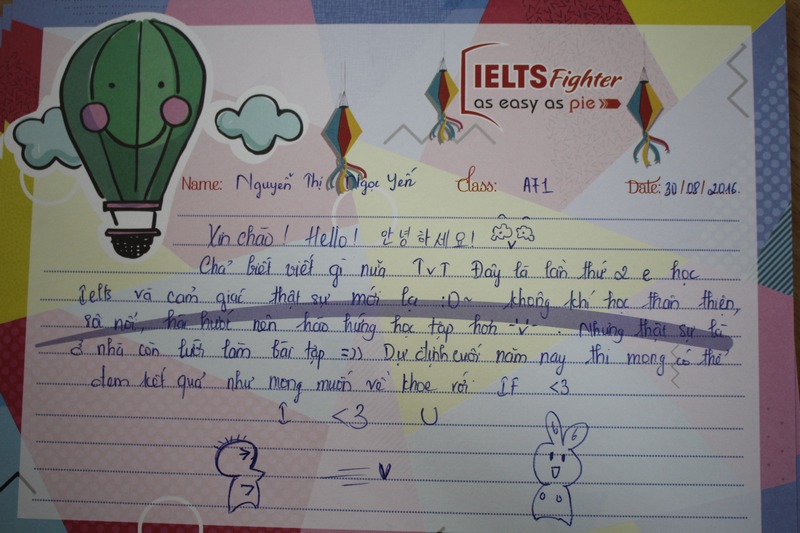 IELTS Fighter
as easy as pie
Name: Nguyễn Thị Ngọc Yến Class: A71 Date: 30/08/2016.
Xin chào! Hello! 안녕하세요!
Chả biết viết gì nữa T v T Đây là lần thứ 2 e học
Ielts và cảm giác thật sự mới lạ :D~ không khí học thân thiện,
sôi nổi, hài hước nên hào hứng học tập hơn -v- . Nhưng thật sự là
ở nhà còn lười làm bài tập =)) Dự định cuối năm nay thi mong có thể
đem kết quả như mong muốn về khoe với IF <3
I <3 U